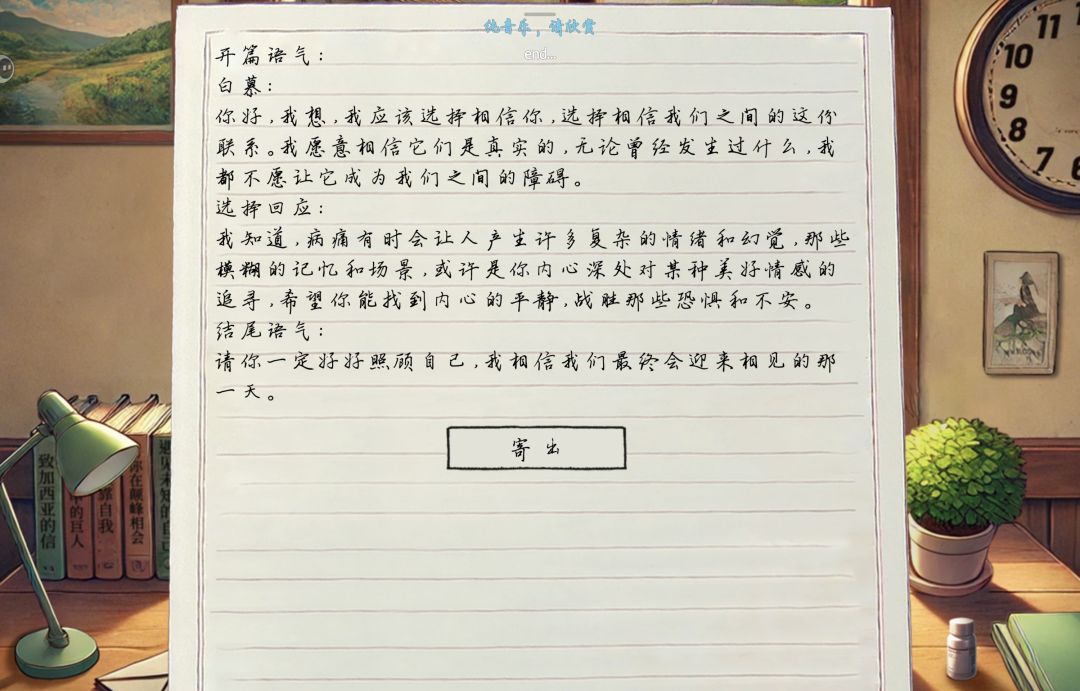 纯音乐，请欣赏
end...
开篇语气：
白慕：
你好,我想,我应该选择相信你,选择相信我们之间的这份
联系。我愿意相信它们是真实的,无论曾经发生过什么,我
都不愿让它成为我们之间的障碍。
选择回应：
我知道,病痛有时会让人产生许多复杂的情绪和幻觉,那些
模糊的记忆和场景,或许是你内心深处对某种美好情感的
追寻,希望你能找到内心的平静,战胜那些恐惧和不安。
结尾语气：
请你一定好好照顾自己,我相信我们最终会迎来相见的那
一天。
寄出
致加西亚的信
的巨人
靠自我
你在颠峰相会
遇见未知的自己
11
10
9
8
7
6